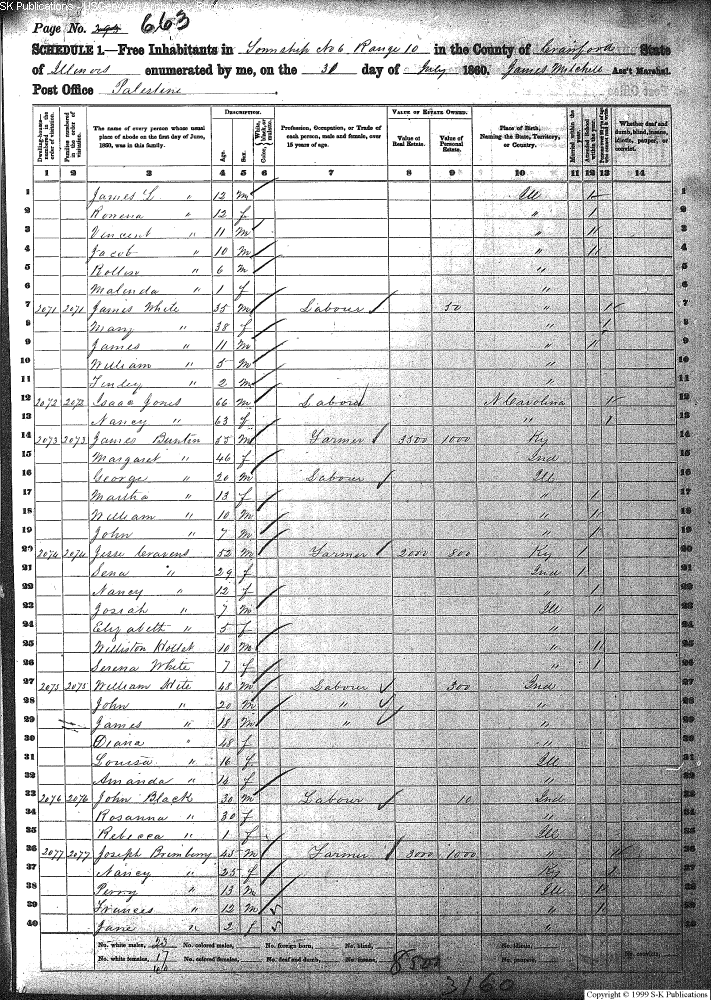 SK Publications - USGenWeb
Page No. 663
SCHEDULE 1.—Free Inhabitants in Township No 6 Range 10 in the County of Crawford State
of Illinois enumerated by me, on the 30 day of July 1860. James Mitchell Ass't Marshal.
Post Office Palestine
Dwelling-houses— numbered in the order of visitation.
Families numbered in the order of visitation.
The name of every person whose usual place of abode on the first day of June, 1860, was in this family.
DESCRIPTION.
Age.
Sex.
Color, White, black, or mulatto.
Profession, Occupation, or Trade of each person, male and female, over 15 years of age.
VALUE OF ESTATE OWNED.
Value of Real Estate.
Value of Personal Estate.
Place of Birth, Naming the State, Territory, or Country.
Married within the year.
Attended School within the year.
Whether deaf and dumb, blind, insane, idiotic, pauper, or convict.
1 2 3 4 5 6 7 8 9 10 11 12 13 14
1 James L " 12 m Ill 1 1
2 Romena " 12 f " 1 2
3 Vincent " 11 m " 1 3
4 Jacob " 10 m " 1 4
5 Rollin " 6 m " 5
6 Malinda " 1 f " 6
7 2071 2071 James White 35 m Labour 50 " 1 7
8 Mary " 38 f " 1 8
9 James " 11 m " 1 9
10 William " 5 m " 10
11 Finley " 2 m " 11
12 2072 2072 Isaac Jones 66 m Labour N Carolina 1 12
13 Nancy " 63 f " 1 13
14 2073 2073 James Buntin 55 m Farmer 3500 1000 Ky 14
15 Margaret " 46 f Ind 15
16 George " 20 m Labour Ill 16
17 Martha " 13 f " 1 17
18 William " 10 m " 1 18
19 John " 7 m " 1 19
20 2074 2074 Jesse Cravens 52 m Farmer 2000 800 Ky 1 20
21 Sena " 29 f Ind 1 21
22 Nancy " 12 f " 1 22
23 Josiah " 7 m Ill 1 23
24 Elizabeth " 5 f " 24
25 Williston 10 m " 1 25
26 Serena White 7 f " 1 26
27 2075 2075 William Hite 48 m Labour 300 Ind 27
28 John " 20 m " " 28
29 James " 18 m " " 29
30 Diana " 48 f " 30
31 Louisa " 16 f Ill 31
32 Amanda " 14 f " 32
33 2076 2076 John Black 30 m Labour 10 Ind 33
34 Rosanna " 30 f " 34
35 Rebecca " 1 f Ill 35
36 2077 2077 Joseph Brimberry 45 m Farmer 3000 1000 " 36
37 Nancy " 25 f Ky 37
38 Perry " 13 m Ill 1 38
39 Frances " 12 m " 1 39
40 Jane " 2 f " 40
No. white males, 23 No. colored males, No. foreign born, No. blind, No. idiotic,
No. white females, 17 No. colored females, No. deaf and dumb, No. insane, 8500 No. paupers, No. convicts,
3160
Copyright © 1999 S-K Publications